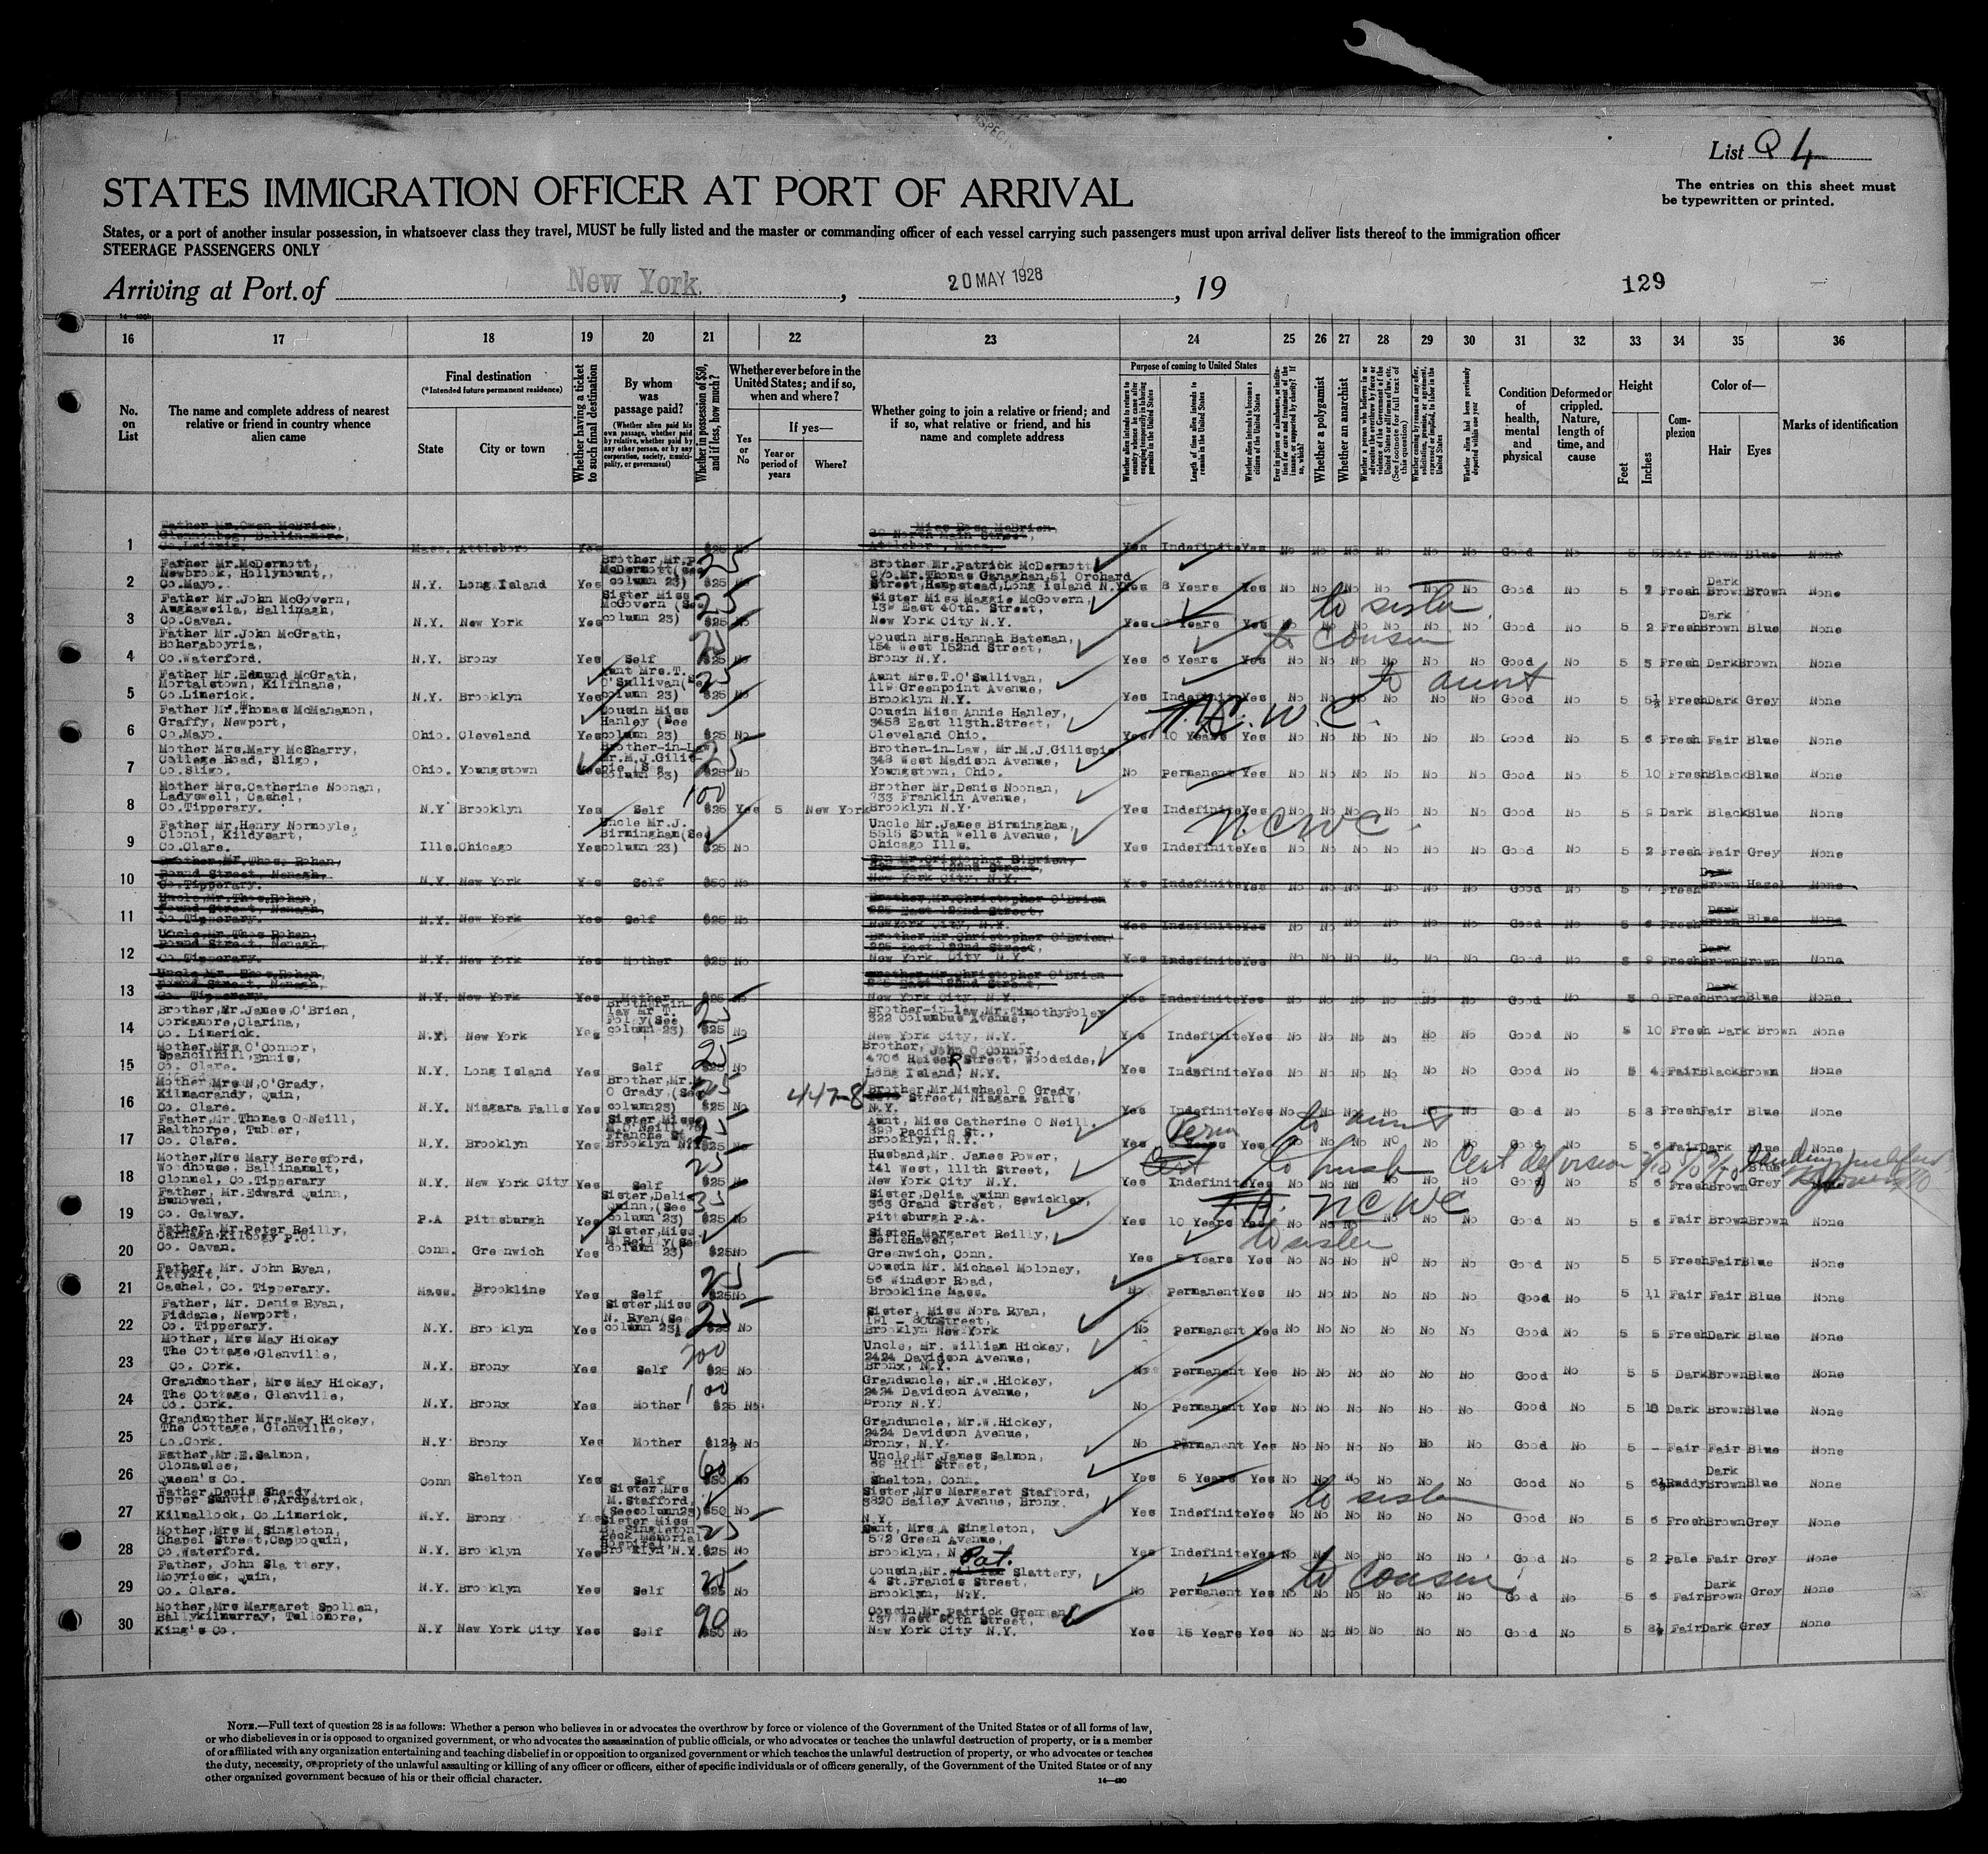 List Q 4
The entries on this sheet must
be typewritten or printed.
STATES IMMIGRATION OFFICER AT PORT OF ARRIVAL
States, or a port of another insular possession, in whatsoever class they travel, MUST be fully listed and the master or commanding officer of each vessel carrying such passengers must upon arrival deliver lists thereof to the immigration officer
STEERAGE PASSENGERS ONLY
Arriving at Port of New York. , 20 MAY 1928 , 19
129
16 17 18 19 20 21 22 23 24 25 26 27 28 29 30 31 32 33 34 35 36
No. on List
The name and complete address of nearest relative or friend in country whence alien came
Final destination
(*Intended future permanent residence)
State
City or town
Whether having a ticket to such final destination
By whom was passage paid?
(Whether alien paid his own passage, whether paid by relative, whether paid by any other person, or by any corporation, society, municipality, or government)
Whether in possession of $50, and if less, how much?
Whether ever before in the United States; and if so, when and where?
Yes or No
If yes—
Year or period of years
Where?
Whether going to join a relative or friend; and if so, what relative or friend, and his name and complete address
Purpose of coming to United States
Length of time alien intends to remain in the United States
Whether alien intends to become a citizen of the United States
Whether a polygamist
Whether an anarchist
Condition of health, mental and physical
Deformed or crippled. Nature, length of time, and cause
Height
Feet
Inches
Complexion
Color of—
Hair
Eyes
Marks of identification
1 Father Mr.Owen McBrien, Ballinamore, Co.Leitrim. Mass. Attleboro Yes $25 No Miss Rose McBrien, North Main Street, Attleboro, Mass. Yes Indefinite Yes No No No No No No Good No 5 Fair Brown Blue None
2 Father Mr.McDermott, Newbrook, Hollymount, Co.Mayo. N.Y. Long Island Yes Brother, Mr.P McDermott (See column 23) 25 $25 No Brother Mr.Patrick McDermott C/o Mr.Thomas Ganaghan, 51 Orchard Street, Hempstead, Long Island N.Y. Yes 8 Years Yes No No No No No No Good No 5 Fresh Dark Brown Brown None
3 Father Mr.John McGovern, Aughaweila, Ballinagh, Co.Cavan. N.Y. New York Yes Sister Miss McGovern (See column 23) 25 $25 No Sister Miss Maggie McGovern, East 40th. Street, New York City N.Y. Yes Years Yes to sister No Good No 5 2 Fresh Dark Brown Blue None
4 Father Mr.John McGrath, Boheraboyria, Co.Waterford. N.Y. Bronx Yes Self 25 $25 No Cousin Mrs.Hannah Bateman, 154 West 152nd Street, Bronx N.Y. Yes Years Yes to cousin No No No No No No Good No 5 Fresh Dark Brown None
5 Father Mr.Edmund McGrath, Mortalstown, Kilfinane, Co.Limerick. N.Y. Brooklyn Yes Aunt Mrs.T. O'Sullivan (See column 23) 25 $25 No Aunt Mrs.T.O'Sullivan, 119 Greenpoint Avenue, Brooklyn N.Y. Yes Indefinite Yes to aunt No No No No No No Good No 5 5½ Fresh Dark Grey None
6 Father Mr.Thomas McManamon, Graffy, Newport, Co.Mayo. Ohio. Cleveland Yes Cousin Miss Hanley (See column 23) $25 No Cousin Miss Annie Hanley, 3458 East 113th.Street, Cleveland Ohio. Yes 10 Years Yes N.C.W.C. No No No No No No Good No 5 6 Fresh Fair Blue None
7 Mother Mrs.Mary McSharry, College Road, Sligo, Co.Sligo. Ohio. Youngstown Yes Brother-in-Law Mr.M.J.Gillispie (See column 23) 25 $25 No Brother-in-Law, Mr.M.J.Gilispie 348 West Madison Avenue, Youngstown, Ohio. No Permanent Yes No No No No No No Good No 5 10 Fresh Black Blue None
8 Mother Mrs.Catherine Noonan, Ladyswell, Cashel, Co.Tipperary. N.Y Brooklyn Yes Self 100 $25 Yes 5 New York Brother Mr.Denis Noonan, 733 Franklin Avenue, Brooklyn N.Y. Yes Indefinite Yes No No No No No No Good No 5 9 Dark Black Blue None
9 Father Mr.Henry Normoyle, Clonol, Kildysart, Co.Clare. Ills. Chicago Yes Uncle Mr.J. Birmingham (See column 23) $25 No Uncle Mr.James Birmingham, 5515 South Wells Avenue, Chicago Ills. Yes Indefinite Yes N.C.W.C. No No No No No No Good No 5 2 Fresh Fair Grey None
10 Brother, Mr.Thos. Rohan, Pound Street, Nenagh, Co.Tipperary. N.Y. New York Yes Self $50 No Son Mr.Cristopher O'Brien, East 122nd Street, New York City, N.Y. Yes Indefinite Yes Good No 5 7 Fresh Dark Brown Hazel None
11 Uncle Mr.Thos.Rohan, Pound Street, Nenagh, Co.Tipperary. N.Y. New York Yes Self $25 No Brother, Mr.Christopher O'Brien 225 East 122nd Street, NewYork City, N.Y. Yes Indefinite Yes No No No No No No Good No 5 Fresh Dark Brown Blue None
12 Uncle Mr.Thos Rohan, Pound Street, Nenagh, Co.Tipperary. N.Y. New York Yes Mother $25 No Brother, Mr.Christopher O'Brien 225 East 122nd Street, New York City N.Y. Yes Indefinite Yes No No No No No No Good No Fresh Dark Brown Brown None
13 Uncle Mr. Thos.Rohan, Pound Street, Nenagh, Co. Tipperary. N.Y. New York Yes Mother $25 No Brother, Mr.Christopher O'Brien 225 East 122nd Street, New York City, N.Y. Yes Indefinite Yes No No No No No No Good No 5 0 Fresh Dark Brown Blue None
14 Brother, Mr.James, O'Brien, Corkamore, Clarina, Co. Limerick. N.Y. New York Yes Brother-in-law Mr T. Foley (See column 23) 25 $25 No Brother-in-law, Mr.Timothy Foley 322 Columbus Avenue, New York City, N.Y. Yes Indefinite Yes No No No No No No Good No 5 10 Fresh Dark Brown None
15 Mother, Mrs O'Connor, Spancilhill, Ennis, Co. Clare. N.Y. Long Island Yes Self 25 $25 No Brother, John O Connor, Street, Woodside, Long Island, N.Y. Yes Indefinite Yes No No No No No No Good No 5 4 Fair Black Brown None
16 Mother, Mrs N, O'Grady, Kilmacrandy, Quin, Co. Clare. N.Y. Niagara Falls Yes Brother, Mr. O Grady, (See column 23) 25 $25 No 447-8 Brother Mr Michael O Grady, Street, Niagara Falls N.Y. Yes Indefinite Yes No No No No No No Good No 5 8 Fresh Fair Blue None
17 Father, Mr Thomas O Neill, Ralthorpe, Tubber, Co. Clare. N.Y. Brooklyn Yes Sister, Miss M.O'Neill Brooklyn N.Y. 25 $25 No Aunt, Miss Catherine O Neill, 399 Pacific St., Brooklyn, N.Y. Yes Perm Yes to aunt No No No No No Good No 5 6 Fair Dark Blue None
18 Mother, Mrs Mary Beresford, Woodhouse, Ballinamalt, Clonmel, Co.Tipperary N.Y. New York City Yes Self 25 $25 No Husband, Mr. James Power, 141 West, 111th Street, New York City N.Y. Yes Indefinite Yes Cert to husb Cert def vision No No No No No No Good No 5 6 Fresh Brown Grey
19 Father, Mr.Edward Quinn, Bunowen, Co. Galway. P.A Pittsburgh Yes Sister, Delia Quinn, (See column 23) 35 $25 No Sister, Delia Quinn 363 Grand Street, Sewickley, Pittsburgh P.A. Yes 10 Years Yes NCWC No No No No No No Good No 5 6 Fair Brown Brown None
20 Father, Mr.Peter Reilly, Carnagh, Kilcogy P.O. Co. Cavan. Conn. Greenwich Yes Sister, Miss M Reilly (See column 23) $25 No Sister Margaret Reilly, Bellehaven, Greenwich, Conn. Yes 5 Years Yes to sister No No No No No No Good No 5 5 Fresh Fair Blue None
21 Father, Mr. John Ryan, Attykit, Cashel, Co. Tipperary. Mass. Brookline Yes Self 25 $25 No Cousin Mr. Michael Moloney, 56 Windsor Road, Brookline Mass. No Permanent Yes No No No No No No Good No 5 11 Fair Fair Blue None
22 Father, Mr. Denis Ryan, Fiddane, Newport, Co. Tipperary. N.Y. Brooklyn Yes Sister, Miss N. Ryan (See column 23) 25 $25 No Sister, Miss Nora Ryan, 191 - 80thStreet, Brooklyn New York No Permanent Yes No No No No No No Good No 5 5 Fresh Dark Blue None
23 Mother, Mrs May Hickey The Cottage, Glenville, Co. Cork. N.Y. Bronx Yes Self $25 No Uncle, Mr. William Hickey, 2424 Davidson Avenue, Bronx, N.Y. No Permanent Yes No No No No No No Good No 5 5 Dark Brown Blue None
24 Grandmother, Mrs May Hickey, The Cottage, Glenville, Co. Cork. N.Y. Bronx Yes Mother 100 $25 No Granduncle, Mr.W.Hickey, 2424 Davidson Avenue, Bronx N.Y. No Permanent Yes No No No No No No Good No 5 Dark Brown Blue None
25 Grandmother Mrs.May Hickey, The Cottage, Glenville, Co.Cork. N.Y. Bronx Yes Mother $12½ No Granduncle, Mr.W.Hickey, 2424 Davidson Avenue, Bronx, N.Y. No Permanent Yes No No No No No No Good No 5 - Fair Fair Blue None
26 Father, Mr.E.Salmon, Clonaslee, Queen's Co. Conn Shelton Yes Self 60 $50 No Uncle, Mr James Salmon, 89 Hill Street, Shelton, Conn. Yes 5 Years Yes No No No No No No Good No 5 6½ Ruddy Dark Brown Blue None
27 Father, Denis Sheedy, Upper Sunville, Ardpatrick, Kilmallock, Co.Limerick. N.Y. Bronx Yes Sister, Mrs M. Stafford, (See column 23) $50 No Sister, Mrs Margaret Stafford, 3820 Bailey Avenue, Bronx. N.Y. Yes Indefinite Yes to sister No No No No No No Good No 5 6 Fresh Brown Grey None
28 Mother, Mrs M. Singleton, Chapel Street, Cappoquin, Co.Waterford. N.Y. Brooklyn Yes Sister Miss Singleton Peck Memorial Hospital, Brooklyn N.Y. 25 $25 No Aunt, Mrs A Singleton, 572 Green Avenue, Brooklyn, N.Y. Yes Indefinite Yes No No No No No No Good No 5 2 Pale Fair Grey None
29 Father, John Slattery, Moyrieck, Quin, Co. Clare. N.Y. Brooklyn Yes Self $25 No Cousin, Mr. Pat. Slattery, 4 St.Francis Street, Brooklyn, N.Y. No Permanent Yes to cousin No No No No No No Good No 5 6 Fair Dark Brown Grey None
30 Mother, Mrs Margaret Spollen, Ballykilmurray, Tullomore, King's Co. N.Y New York City Yes Self 90 $50 No Cousin, Mr.Patrick Grennan, 137 West Street, New York City N.Y. Yes 15 Years Yes No No No No No No Good No 5 8½ Fair Dark Grey None
NOTE.—Full text of question 28 is as follows: Whether a person who believes in or advocates the overthrow by force or violence of the Government of the United States or of all forms of law,
or who disbelieves in or is opposed to organized government, or who advocates the assassination of public officials, or who advocates or teaches the unlawful destruction of property, or is a member
of or affiliated with any organization entertaining and teaching disbelief in or opposition to organized government or which teaches the unlawful destruction of property, or who advocates or teaches
the duty, necessity, or propriety of the unlawful assaulting or killing of any officer or officers, either of specific individuals or of officers generally, of the Government of the United States or of any
other organized government because of his or their official character.
14—430